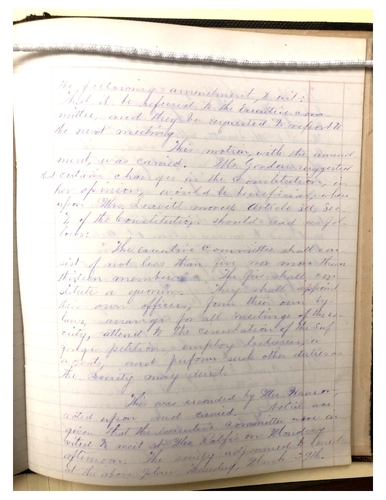 the following amendment, to wit:
That it be referred to the Executive com
mittee, and they be requested to report to
the next meeting.
This motion with the amend
ment, was carried. Mrs Goodrich suggested
that certain changes in the Constitution, in
her opinion, would be beneficial, where
upon Mrs moved Article 3d, Sec.
2 of the Constitution should read as fol
lows:
"The Executive Committee shall con
sist of not less than five nor more than
thirteen members. The five shall con
stitute a quorum. They shall appoint
their own officers, form their own by
laws, arrange for all meetings of the so
ciety, attend to the circulation of the Suf
frage petition, employ lecturers, if
and perform such other duties as
the Society may direct.
This was seconded by Mrs
voted upon and carried. Notice was
given that the Executive Committee were in
vited to meet at Mrs on Monday
afternoon. The Society adjourned to meet
at the above place Tuesday, March